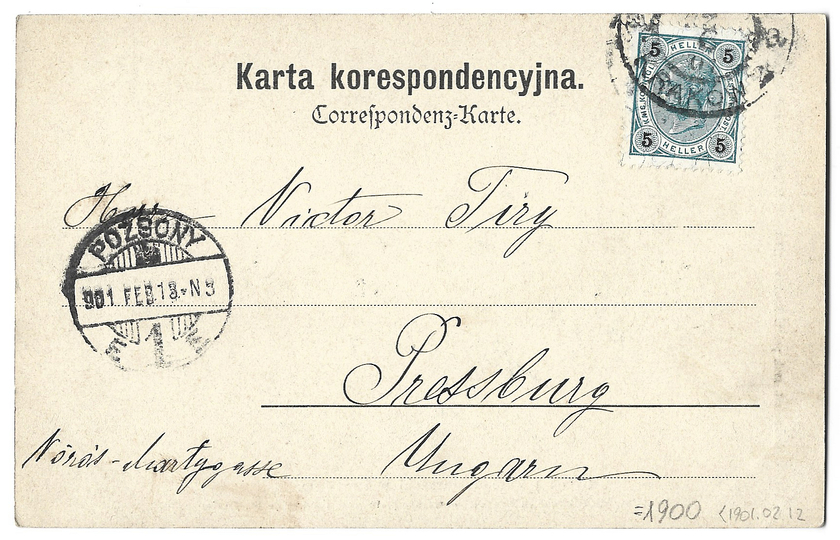 Karta korespondencyjna.
Correspondenz-Karte.
5 HELLER 5
5 HELLER 5
KRAKÓW
Herr Victor Tiry
POZSONY
901 FEB.13.-N3
1
Pressburg
Ungarn
=1900 <1901.02 12